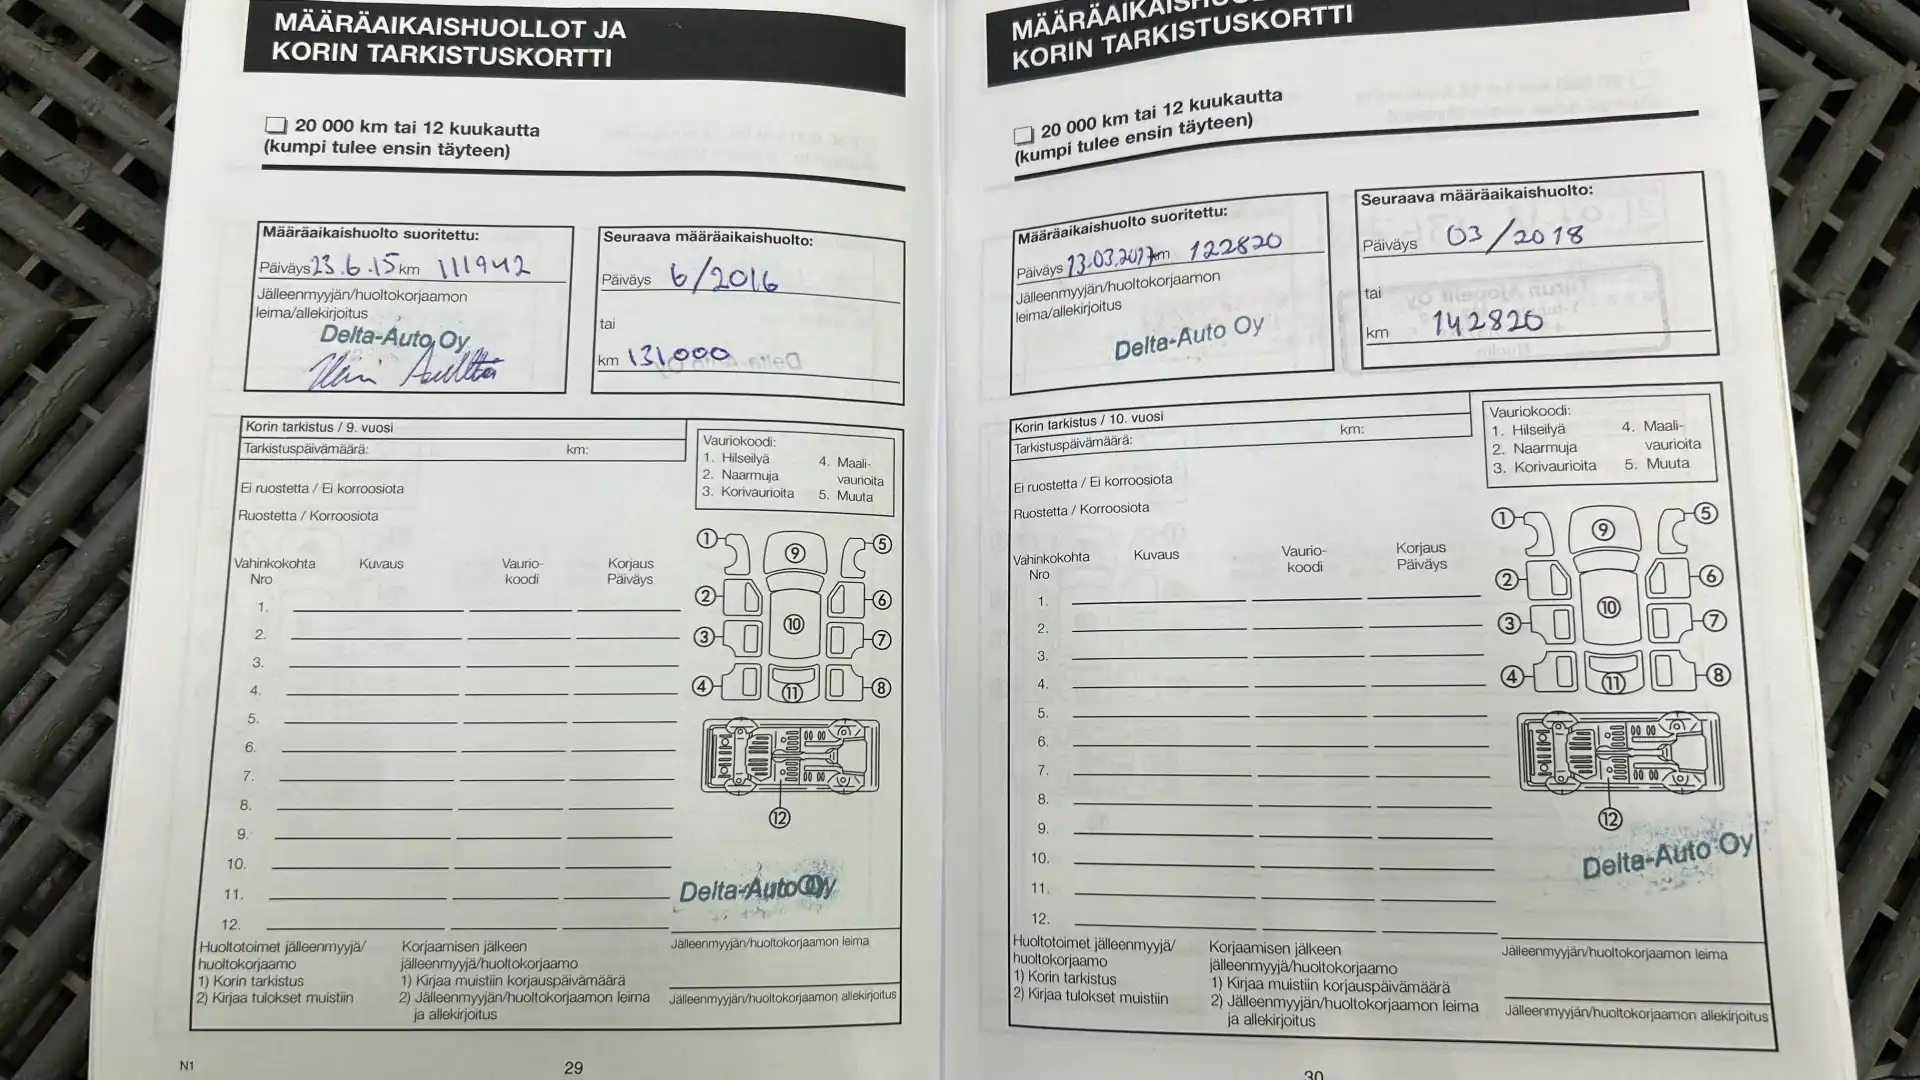 MÄÄRÄAIKAISHUOLLOT JA
KORIN TARKISTUSKORTTI
20 000 km tai 12 kuukautta
(kumpi tulee ensin täyteen)
Määräaikaishuolto suoritettu:
Päiväys 23.6.15 km 111942
Jälleenmyyjän/huoltokorjaamon
leima/allekirjoitus
Delta-Auto Oy
Seuraava määräaikaishuolto:
Päiväys 6/2016
tai
km 131000
Korin tarkistus / 9. vuosi
Tarkistuspäivämäärä: km:
Ei ruostetta / Ei korroosiota
Ruostetta / Korroosiota
Vauriokoodi:
1. Hilseilyä 4. Maali-
2. Naarmuja vaurioita
3. Korivaurioita 5. Muuta
Vahinkokohta Kuvaus Vaurio- Korjaus
Nro koodi Päiväys
1.
2.
3.
4.
5.
6.
7.
8.
9.
10.
11.
12.
1 9 5
2 6
10
3 7
4 11 8
12
Delta-Auto Oy
Jälleenmyyjän/huoltokorjaamon leima
Jälleenmyyjän/huoltokorjaamon allekirjoitus
Huoltotoimet jälleenmyyjä/
huoltokorjaamo
1) Korin tarkistus
2) Kirjaa tulokset muistiin
Korjaamisen jälkeen
jälleenmyyjä/huoltokorjaamo
1) Kirjaa muistiin korjauspäivämäärä
2) Jälleenmyyjän/huoltokorjaamon leima
ja allekirjoitus
N1 29
KORIN TARKISTUSKORTTI
20 000 km tai 12 kuukautta
(kumpi tulee ensin täyteen)
Määräaikaishuolto suoritettu:
Päiväys 13.03.2017 km 122820
Jälleenmyyjän/huoltokorjaamon
leima/allekirjoitus
Delta-Auto Oy
Seuraava määräaikaishuolto:
Päiväys 03/2018
tai
km 142820
Korin tarkistus / 10. vuosi
Tarkistuspäivämäärä: km:
Ei ruostetta / Ei korroosiota
Ruostetta / Korroosiota
Vauriokoodi:
1. Hilseilyä 4. Maali-
2. Naarmuja vaurioita
3. Korivaurioita 5. Muuta
Vahinkokohta Kuvaus Vaurio- Korjaus
Nro koodi Päiväys
1.
2.
3.
4.
5.
6.
7.
8.
9.
10.
11.
12.
1 9 5
2 6
10
3 7
4 11 8
12
Delta-Auto Oy
Jälleenmyyjän/huoltokorjaamon leima
Jälleenmyyjän/huoltokorjaamon allekirjoitus
Huoltotoimet jälleenmyyjä/
huoltokorjaamo
1) Korin tarkistus
2) Kirjaa tulokset muistiin
Korjaamisen jälkeen
jälleenmyyjä/huoltokorjaamo
1) Kirjaa muistiin korjauspäivämäärä
2) Jälleenmyyjän/huoltokorjaamon leima
ja allekirjoitus
30